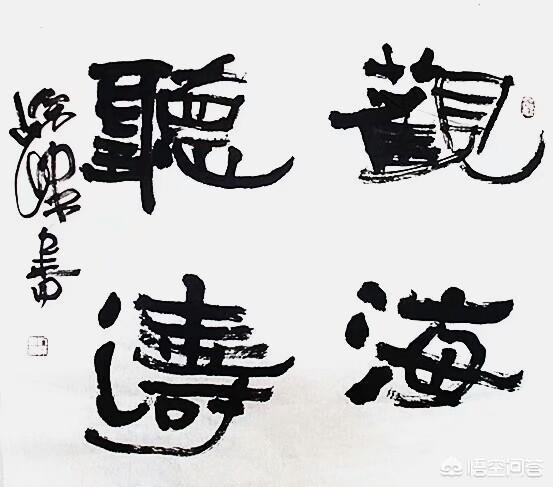 觀海
聽濤
書
悟空问答